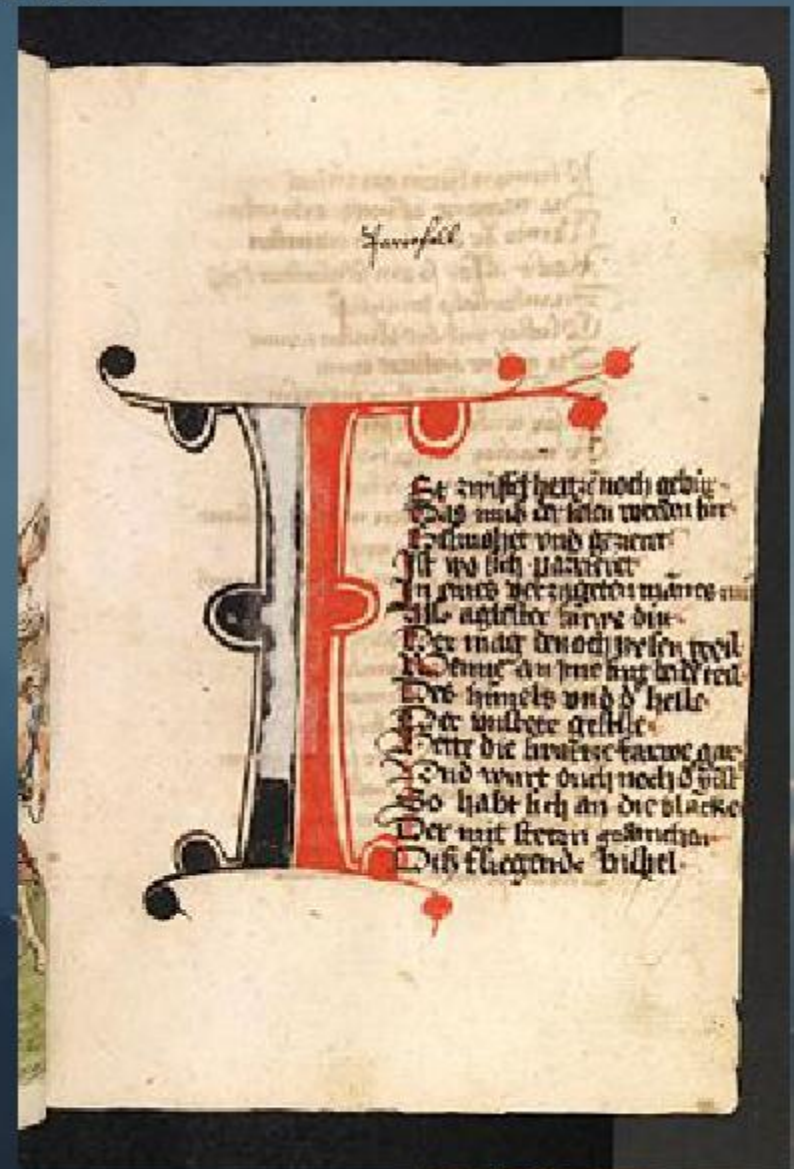 Parcefall
I
St zwiffel hertze noch gebur
Das mus der selen werden sur
Gesmohet vnd gezieret
Ist wo sich parrieret
In eines verzageten mānes
Als agelster farwe dut
Der mag denoch wesen geil
Wenne an yme sint beide teil
Des himels vnd d' helle
Der vnstete geselle
Hette die swartze farwe gar
Vnd wurt ouch noch d'
So habt sich an die blancke
Der mit steten gedancken
Diß fliegende bischel